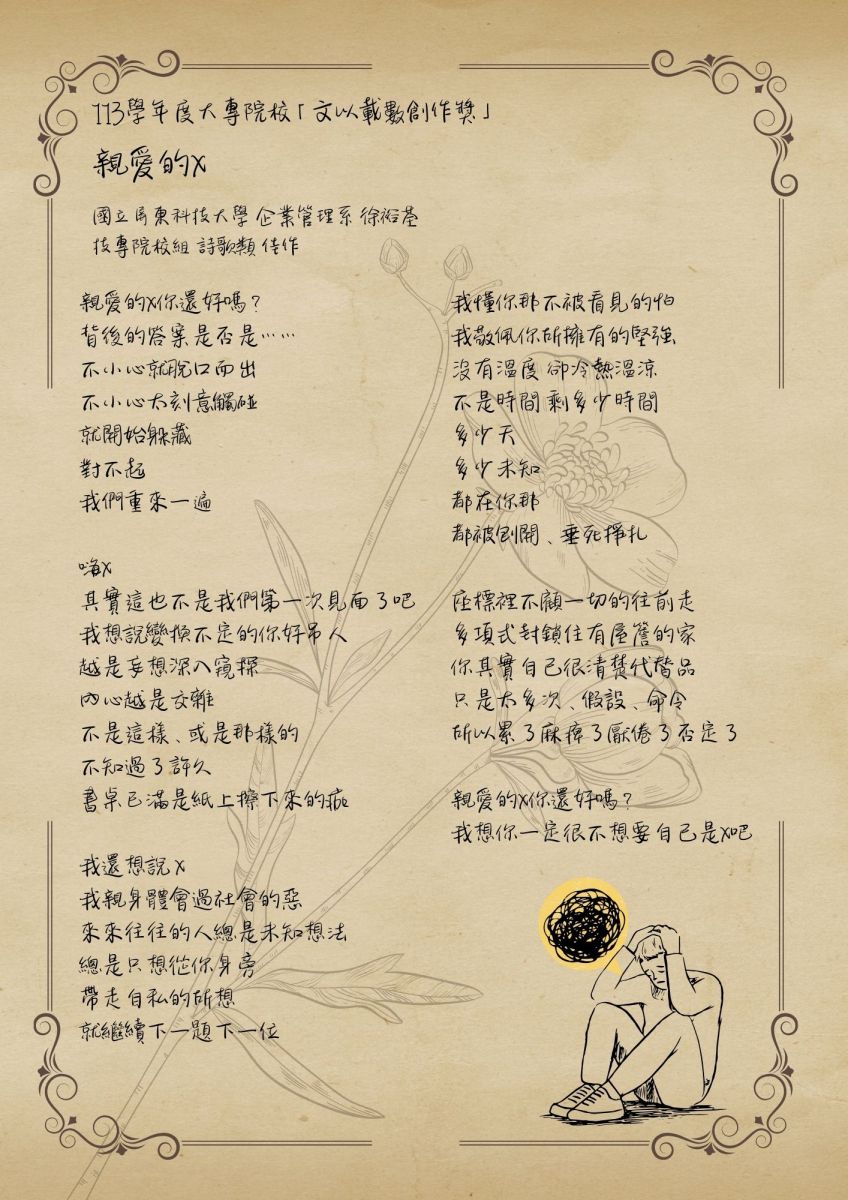 113學年度大專院校「文以載數創作獎」
親愛的X
國立屏東科技大學 企業管理系 徐裕荃
技專院校組 詩歌類 佳作
親愛的X你還好嗎？
背後的答案是否是……
不小心就脫口而出
不小心太刻意觸碰
就開始躲藏
對不起
我們重來一遍
嗨X
其實這也不是我們第一次見面了吧
我想說變換不定的你好吊人
越是妄想深入窺探
內心越是交雜
不是這樣、或是那樣的
不知過了許久
書桌已滿是紙上擦下來的疤
我還想說X
我親身體會過社會的惡
來來往往的人總是未知想法
總是只想從你身旁
帶走自私的所想
就繼續下一題下一位
我懂你那不被看見的怕
我敬佩你所擁有的堅強
沒有溫度 卻冷熱溫涼
不是時間 剩多少時間
多少天
多少未知
都在你那
都被剖開、垂死掙扎
座標裡不顧一切的往前走
多項式封鎖住有屋簷的家
你其實自己很清楚代替品
只是太多次、假設、命令
所以累了麻痺了厭倦了否定了
親愛的X你還好嗎？
我想你一定很不想要自己是X吧